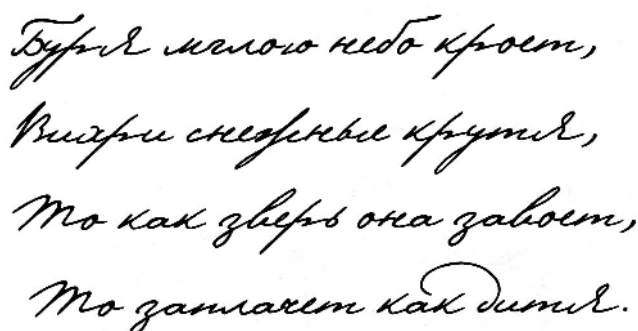 Буря мглою небо кроет,
Вихри снежные крутя,
То как зверь она завоет,
То заплачет как дитя.